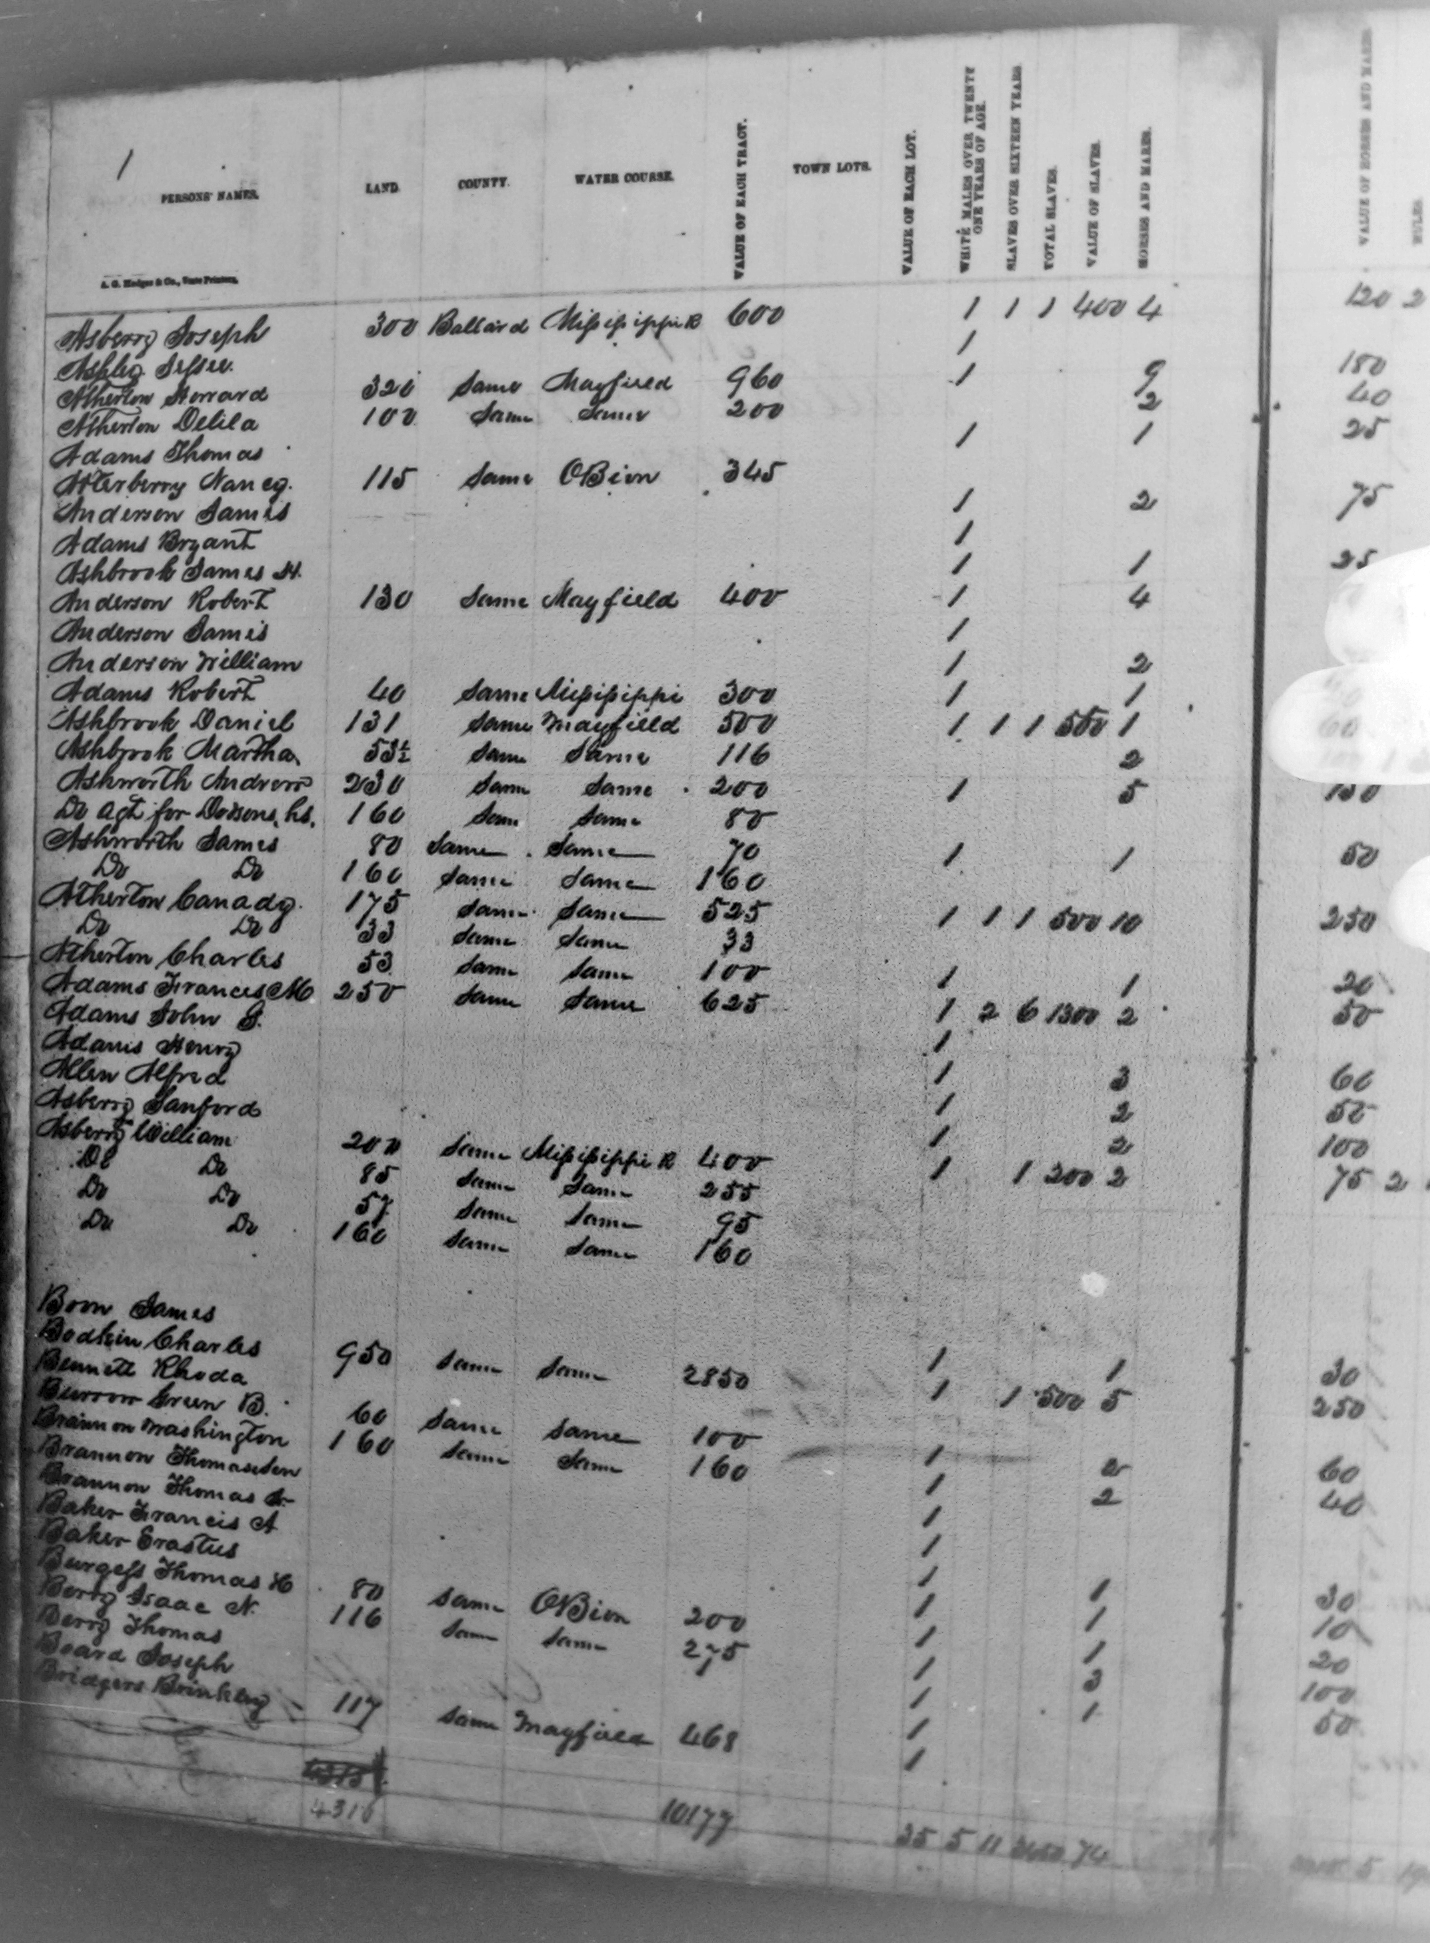 1
PERSONS' NAMES. LAND. COUNTY. WATER COURSE. VALUE OF EACH TRACT. TOWN LOTS. VALUE OF EACH LOT. WHITE MALES OVER TWENTY ONE YEARS OF AGE. SLAVES OVER SIXTEEN YEARS TOTAL SLAVES. VALUE OF SLAVES. HORSES AND MARES. VALUE OF HORSES AND MARES. MULES
A. G. Hodges & Co., State Printers.
Asberry Joseph 300 Ballard Missisippi R 600 1 1 1 400 4 120 2
Ashley Jessee. 1
Atherton Howard 320 Same Mayfield 960 1 9 180
Atherton Delila 100 Same Same 200 2 40
Adams Thomas 1 1 25
Atterberry Nancy. 115 Same OBion 345
Anderson James 1 2 75
Adams Bryant 1
Ashbrook James H. 1 1 25
Anderson Robert 130 Same Mayfield 400 1 4
Anderson James 1
Anderson William 1 2
Adams Robert 40 Same Missisippi 300 1 1
Ashbrook Daniel 131 Same Mayfield 500 1 1 1 550 1 60
Ashbrook Martha 53½ Same Same 116 2
Ashworth Andrew 230 Same Same 200 1 5 130
Do Agt for Dodsons. hs. 160 Sam Same 80
Ashworth James 80 Same Same 70 1 1 50
Do Do 160 Same Same 160
Atherton Canady. 175 Same Same 525 1 1 1 500 10 250
Do Do 33 Same Same 33
Atherton Charles 53 Same Same 100 1 1 20
Adams Frances M 250 Same Same 625 1 2 6 1300 2 50
Adams John G. 1
Adams Henry 1 3 60
Allen Alfred 1 2 50
Asberry Sanford 1 2 100
Asberry William 200 Same Missisippi R 400 1 1 200 2 75 2
Do Do 85 Same Same 255
Do Do 57 Same Same 95
Do Do 160 Same Same 160
Boon James 1 1 30
Bodkin Charles 950 Same Same 2850 1 1 500 5 250
Bennett Rhoda
Burrow Green B. 60 Same Same 100 1 2 60
Brannon Washington 160 Same Same 160 1 2 40
Brannon Thomas Sen 1
Brannon Thomas Jr 1
Baker Francis A 1 1 30
Baker Erastus 1 1 10
Burgess Thomas H 80 Same OBion 200 1 1 20
Berry Isaac N. 116 Same Same 275 1 3 100
Berry Thomas 1 1 50
Board Joseph 1
Bridgers Brinkley 117 Same Mayfield 468 1
4316 10177 35 5 11 3450 74